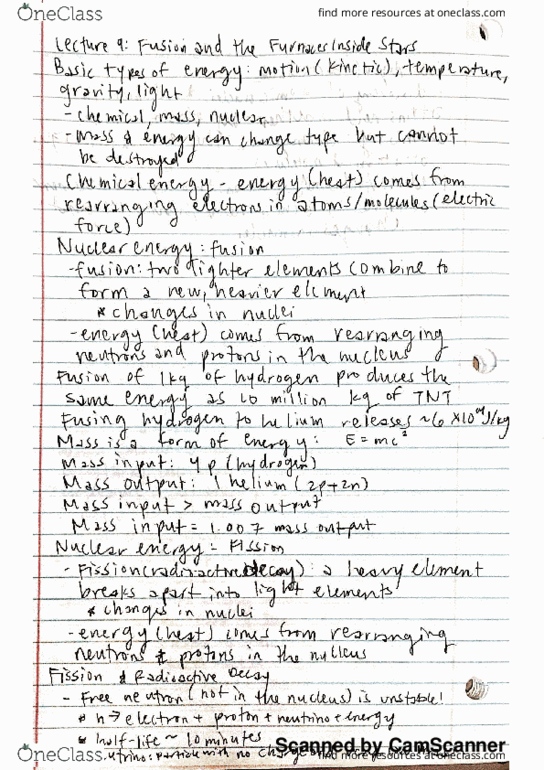 OneClass
find more resources at oneclass.com
Lecture 9: Fusion and the Furnaces Inside Stars
Basic types of energy: motion (kinetic), temperature,
gravity, light
- chemical, mass, nuclear
- Mass & energy can change type but cannot
be destroyed
Chemical energy - energy (heat) comes from
rearranging electrons in atoms/molecules (electric
force)
Nuclear energy: fusion
- fusion: two lighter elements combine to
form a new, heavier element
* changes in nuclei
- energy (heat) comes from rearranging
neutrons and protons in the nucleus
Fusion of 1kg of hydrogen produces the
same energy as 10 million kg of TNT
Fusing hydrogen to helium releases ~6 x10 J/kg
Mass is a form of energy: E=mc²
Mass input: 4p (hydrogen)
Mass output: 1 helium (2p+2n)
Mass input > mass output
Mass input = 1.007 mass output
Nuclear energy - Fission
- Fission (radioactive decay): a heavy element
breaks apart into light elements
* changes in nuclei
- energy (heat) comes from rearranging
neutrons & protons in the nucleus
Fission & Radioactive Decay
- Free neutron (not in the nucleus) is unstable!
* n → electron + proton + neutrino + energy
* half-life ~ 10 minutes
Scanned by CamScanner
OneClass
utrino: particle with no charge
find more resources at oneclass.com